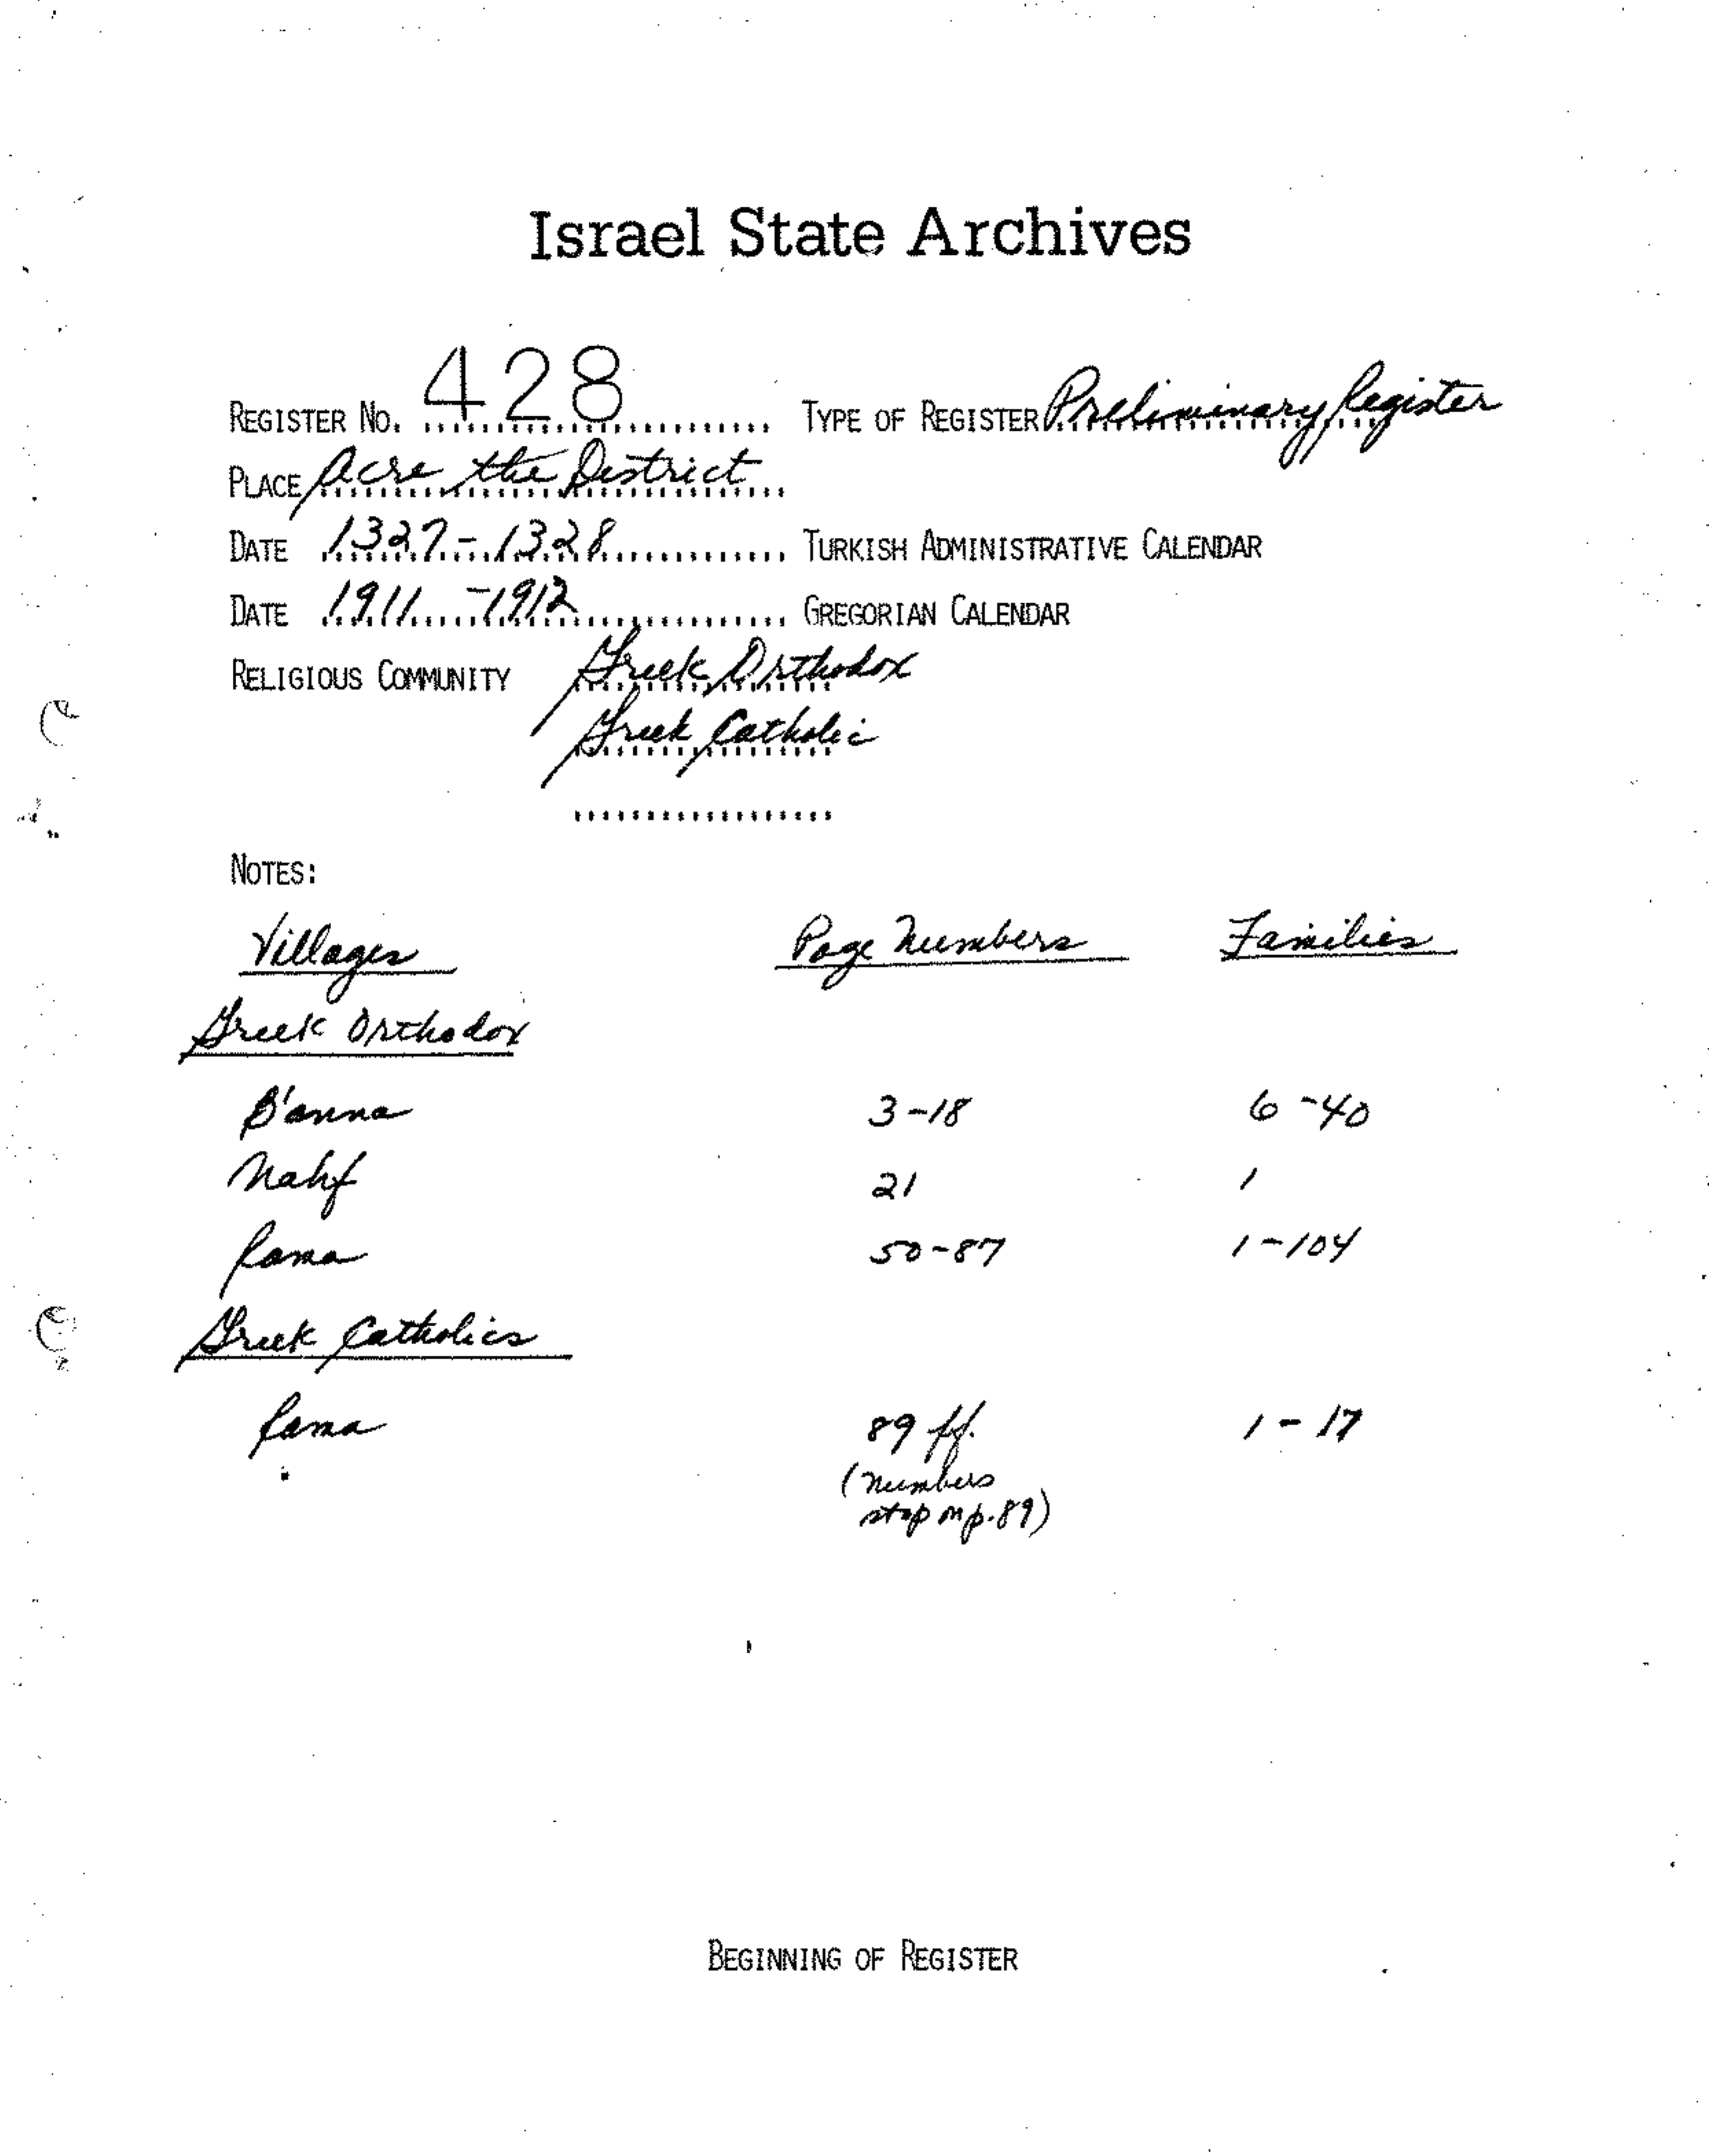 Israel State Archives
REGISTER NO. 428 TYPE OF REGISTER Preliminary Register
PLACE Acre the District
DATE 1327-1328 TURKISH ADMINISTRATIVE CALENDAR
DATE 1911-1912 GREGORIAN CALENDAR
RELIGIOUS COMMUNITY Greek Orthodox
Greek Catholic
NOTES:
Villages Page Numbers Families
Greek Orthodox
B'anna 3-18 6-40
Nahf 21 1
Rama 50-87 1-104
Greek Catholics
Rama 89 ff. 1-17
(numbers
stop on p.89)
BEGINNING OF REGISTER